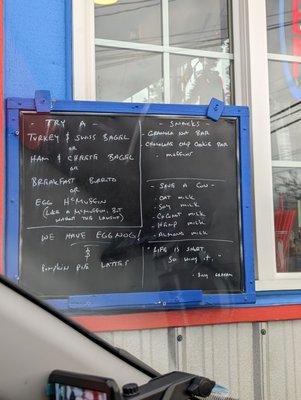 - TRY A -
TURKEY & SWISS BAGEL
OR
HAM & CHEESE BAGEL
OR
BREAKFAST BURRITO
OR
EGG McMUFFIN
(LIKE A McMUFFIN, BUT
WE HAVE EGGNOG
&
PUMPKIN PIE LATTES
- SNACKS -
- GRANOLA NUT BAR
- CHOCOLATE CHIP COOKIE BAR
- MUFFINS
- SAVE A COW -
- OAT MILK
- SOY MILK
- COCONUT MILK
- HEMP MILK
- ALMOND MILK
" LIFE IS SHORT,
SO